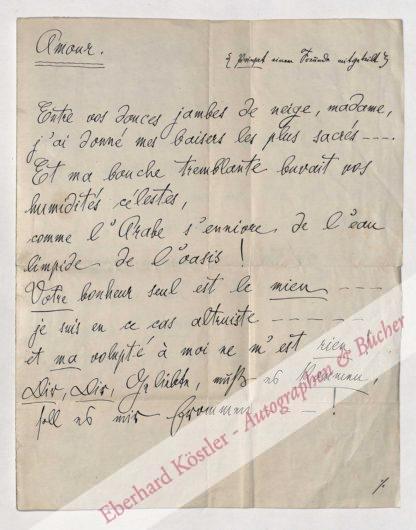 Amour.
( Privat einem Freunde mitgeteilt )
Entre vos douces jambes de neige, madame,
j'ai donné mes baisers les plus sacrés ----.
Et ma bouche tremblante buvait vos
humidités célestes,
comme l'Arabe s'enniore de l'eau
limpide de l'oasis !
Votre bonheur seul est le mien ----
je suis en ce cas altruiste ------
et ma volupté à moi ne m'est rien !
Dir, Dir, Geliebte, muß es kommen,
soll es mir frommen - - !
Eberhard Köstler - Autographen & Bücher